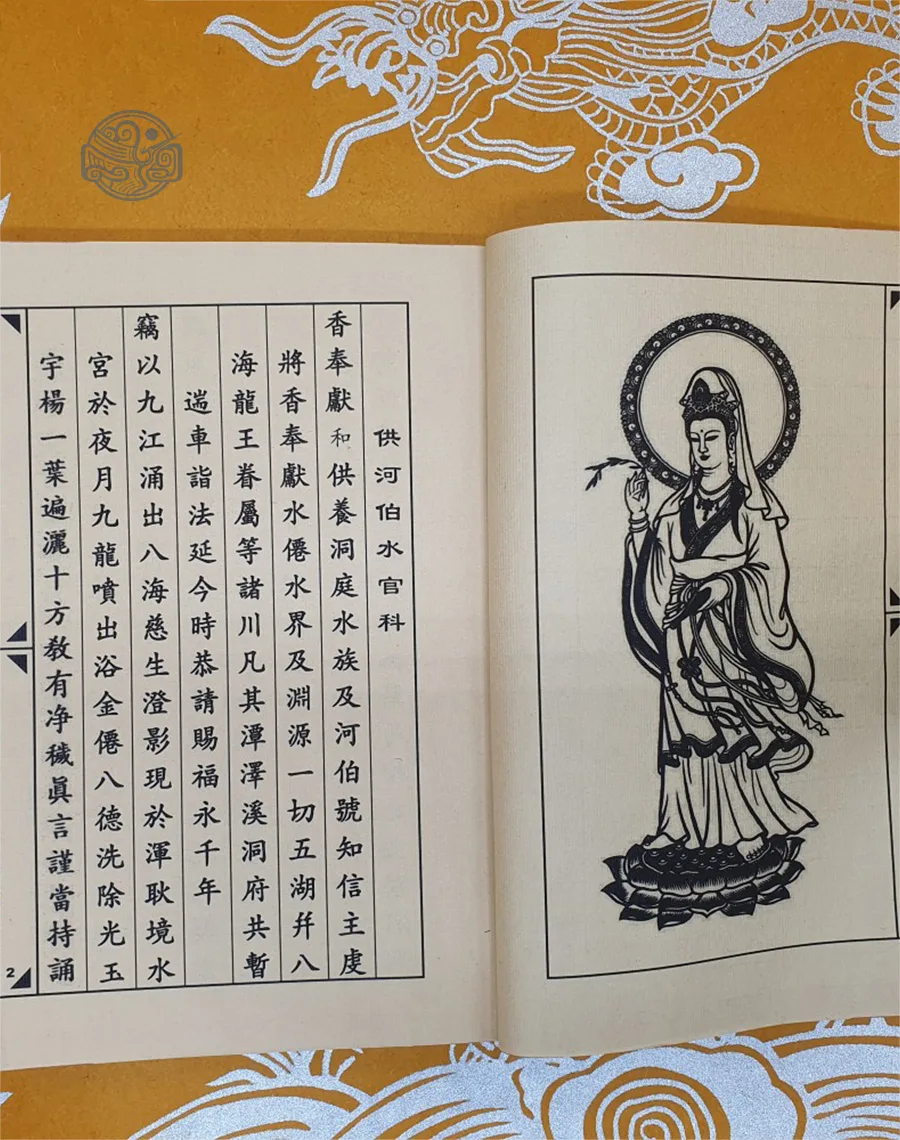 供河伯水官科
香奉獻和供養洞庭水族及河伯號知信主虔
將香奉獻水僊水界及淵源一切五湖幷八
海龍王眷屬等諸川凡其潭澤溪洞府共暫
遄車詣法延今時恭請賜福永千年
竊以九江涌出八海慈生澄影現於渾耿境水
宮於夜月九龍噴出浴金僊八德洗除光玉
宇楊一葉遍灑十方教有净穢眞言謹當持誦
2